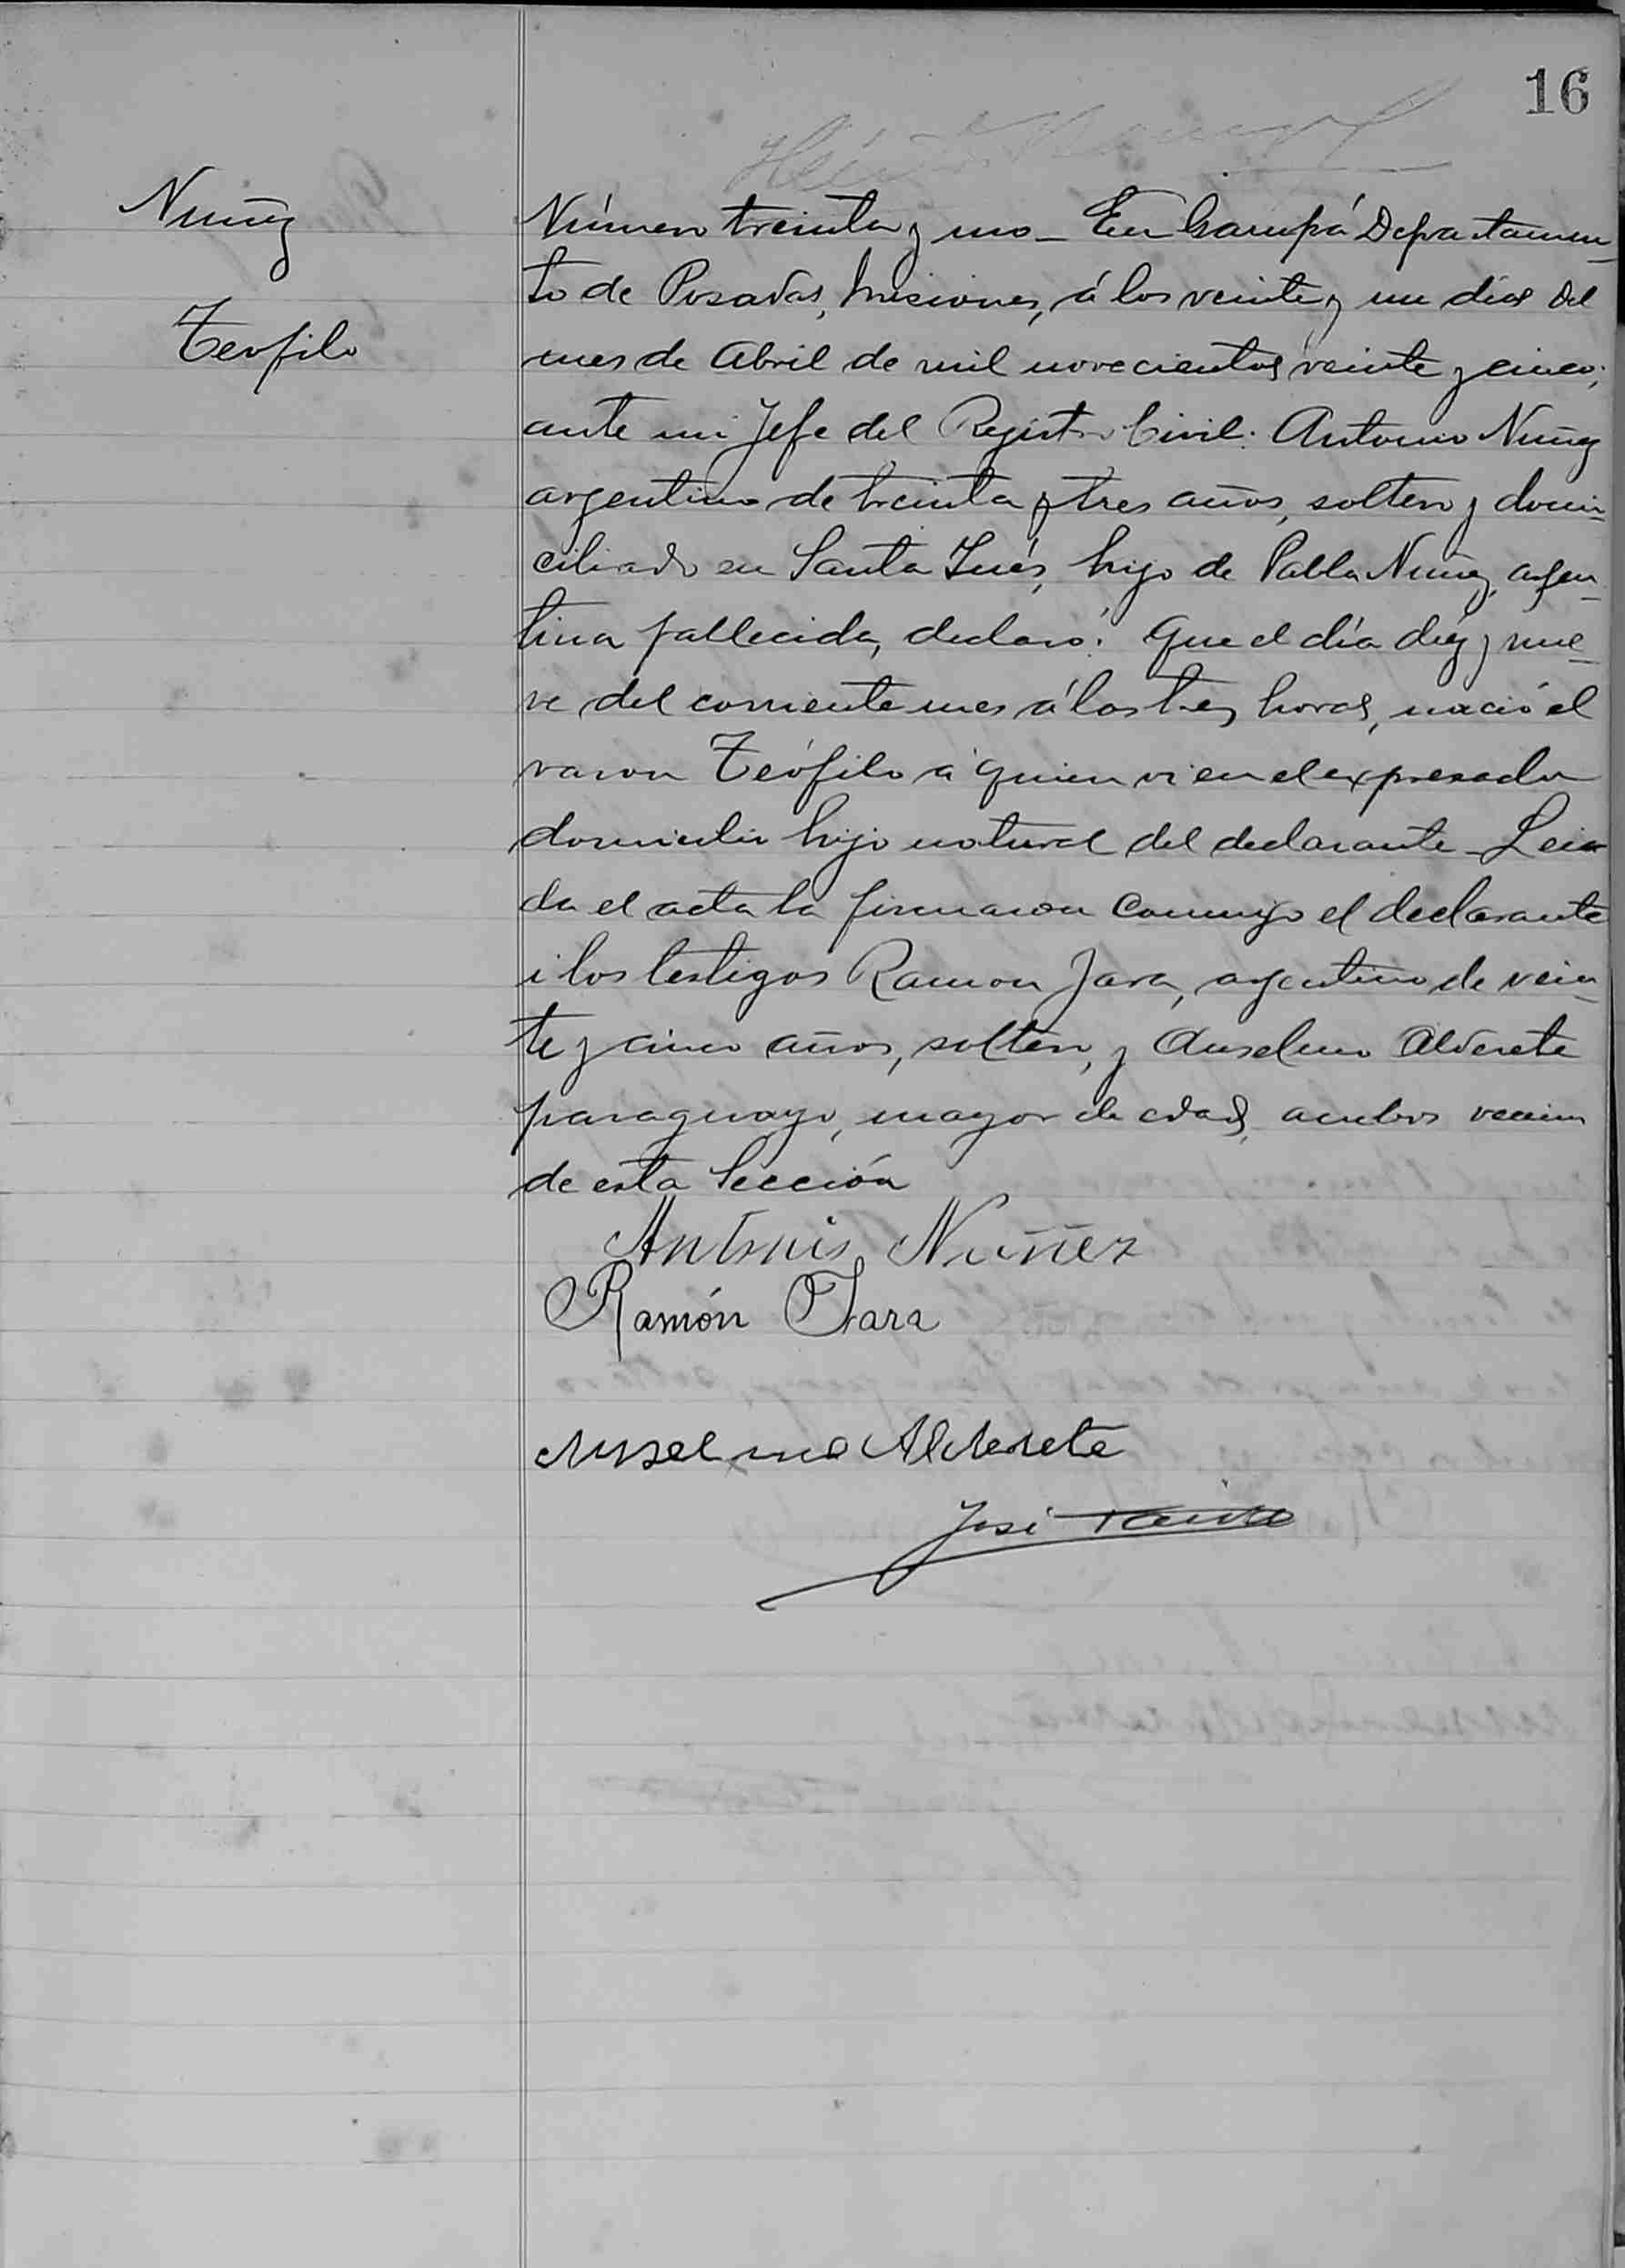 16
Nuñez
Teofilo
Número treinta y uno_ En Garupá Departamen_
to de Posadas, Misiones, á los veinte y un dias del
mes de Abril de mil novecientos veinte y cinco;
ante mi Jefe del Registro Civil: Antonio Nuñez
argentino de treinta y tres años, soltero y domi_
ciliado en Santa Inés, hijo de Pabla Nuñez, argen_
tina fallecida, declaró: Que el día diez y nue_
ve del corriente mes á las tres horas, nació el
varon Teófilo á quien vi en el expresado
domicilio hijo natural del declarante_ Lei
da el acta la firmaron conmigo el declarante
i los testigos Ramon Jara, argentino de vein_
te y cinco años, soltero, y Anselmo Alderete
paraguayo, mayor de edad, ambos vecinos
de esta Sección
Antonio Nuñez
Ramón Jara
Anselmo Alderete
José